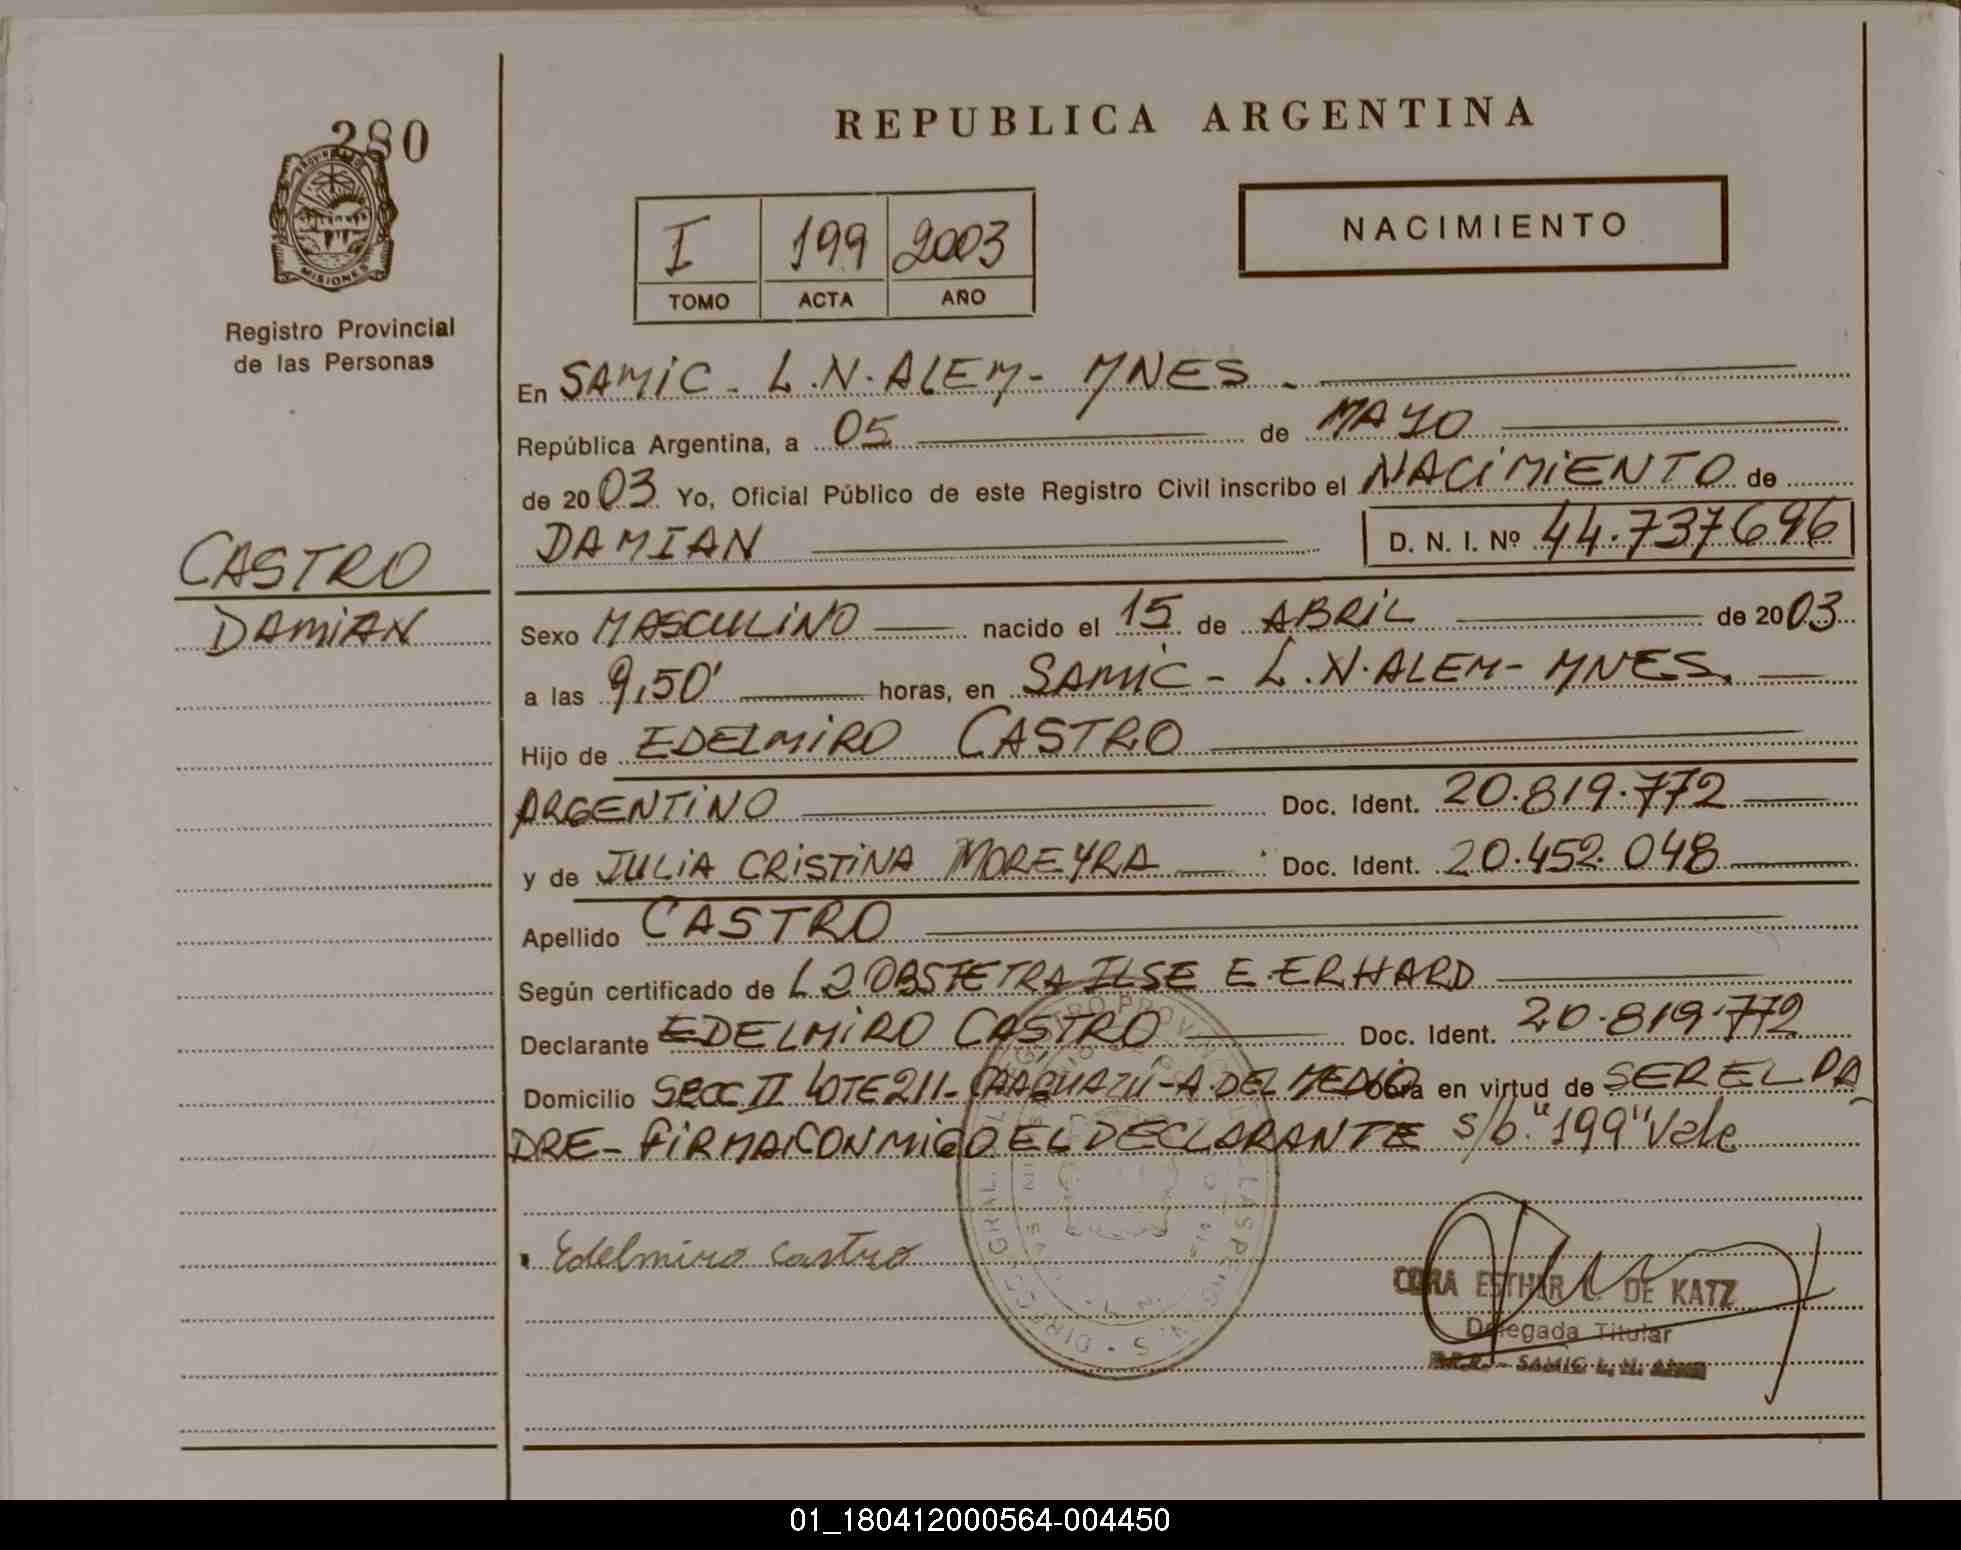 280
PROVINCIA DE
MISIONES
Registro Provincial
de las Personas
CASTRO
DAMIAN
REPUBLICA ARGENTINA
I 199 2003
TOMO ACTA AÑO
NACIMIENTO
En SAMIC - L.N. ALEM - MNES -
República Argentina, a 05 de MAYO
de 2003 Yo, Oficial Público de este Registro Civil inscribo el NACIMIENTO de
DAMIAN D. N. I. Nº 44.737696
Sexo MASCULINO nacido el 15 de ABRIL de 2003
a las 9,50' horas, en SAMIC - L.N. ALEM - MNES.
Hijo de EDELMIRO CASTRO
ARGENTINO Doc. Ident. 20.819.772
y de JULIA CRISTINA MOREYRA Doc. Ident. 20.452.048
Apellido CASTRO
Según certificado de L2 OBSTETRA ILSE E. ERHARD
Declarante EDELMIRO CASTRO Doc. Ident. 20.819.772
Domicilio SECC II LOTE 211 - CAAGUAZU - A. DEL MEDIO obra en virtud de SER EL PA
DRE - FIRMA CONMIGO EL DECLARANTE s/b. "199" Vale
Edelmiro Castro
CORA ESTHER L. DE KATZ
Delegada Titular
R.P.P. - SAMIC L. N. ALEM
01_180412000564-004450